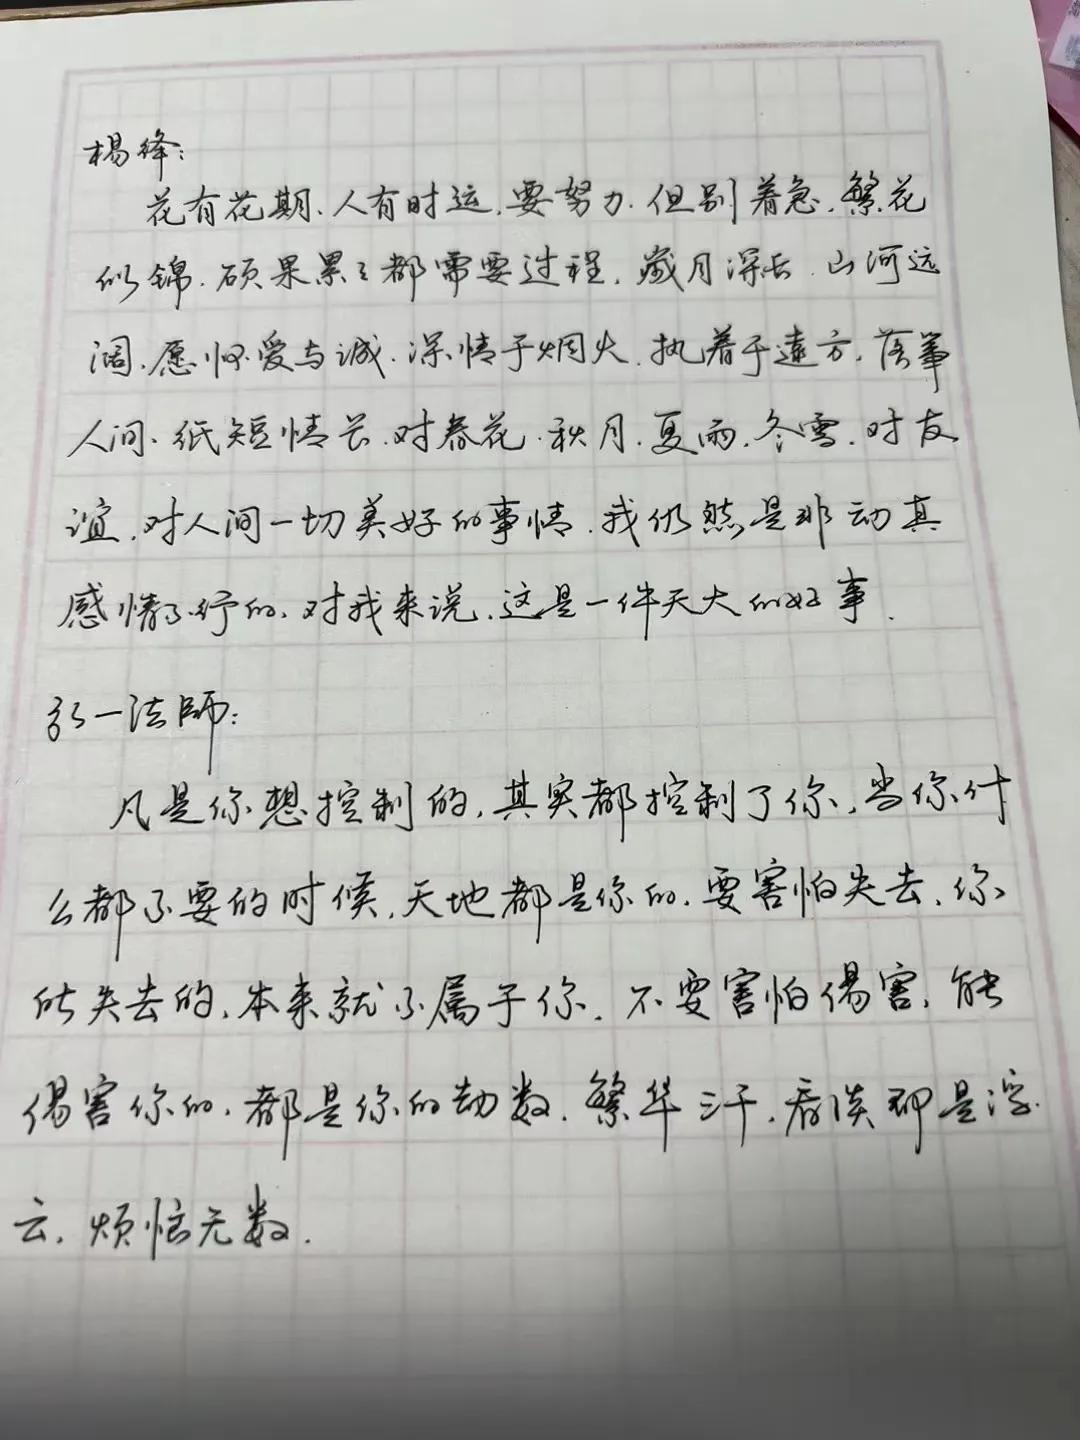 杨绛：
花有花期、人有时运，要努力．但别着急，繁花
似锦．硕果累々都需要过程．岁月深长．山河远
阔、愿怀爱与诚．深情于烟火．执着于遠方．落筆
人间、纸短情长．对春花．秋月．夏雨．冬雪．对友
谊．对人间一切美好的事情．我仍然是非动真
感情不行的．对我来说．这是一件天大的好事．
弘一法師：
凡是你想控制的，其实都控制了你，当你什
么都不要的时候，天地都是你的．要害怕失去，你
能失去的，本来就不属于你．不要害怕傷害，能
傷害你的．都是你的劫数．繁华三千．看淡即是浮
云，烦恼无数．